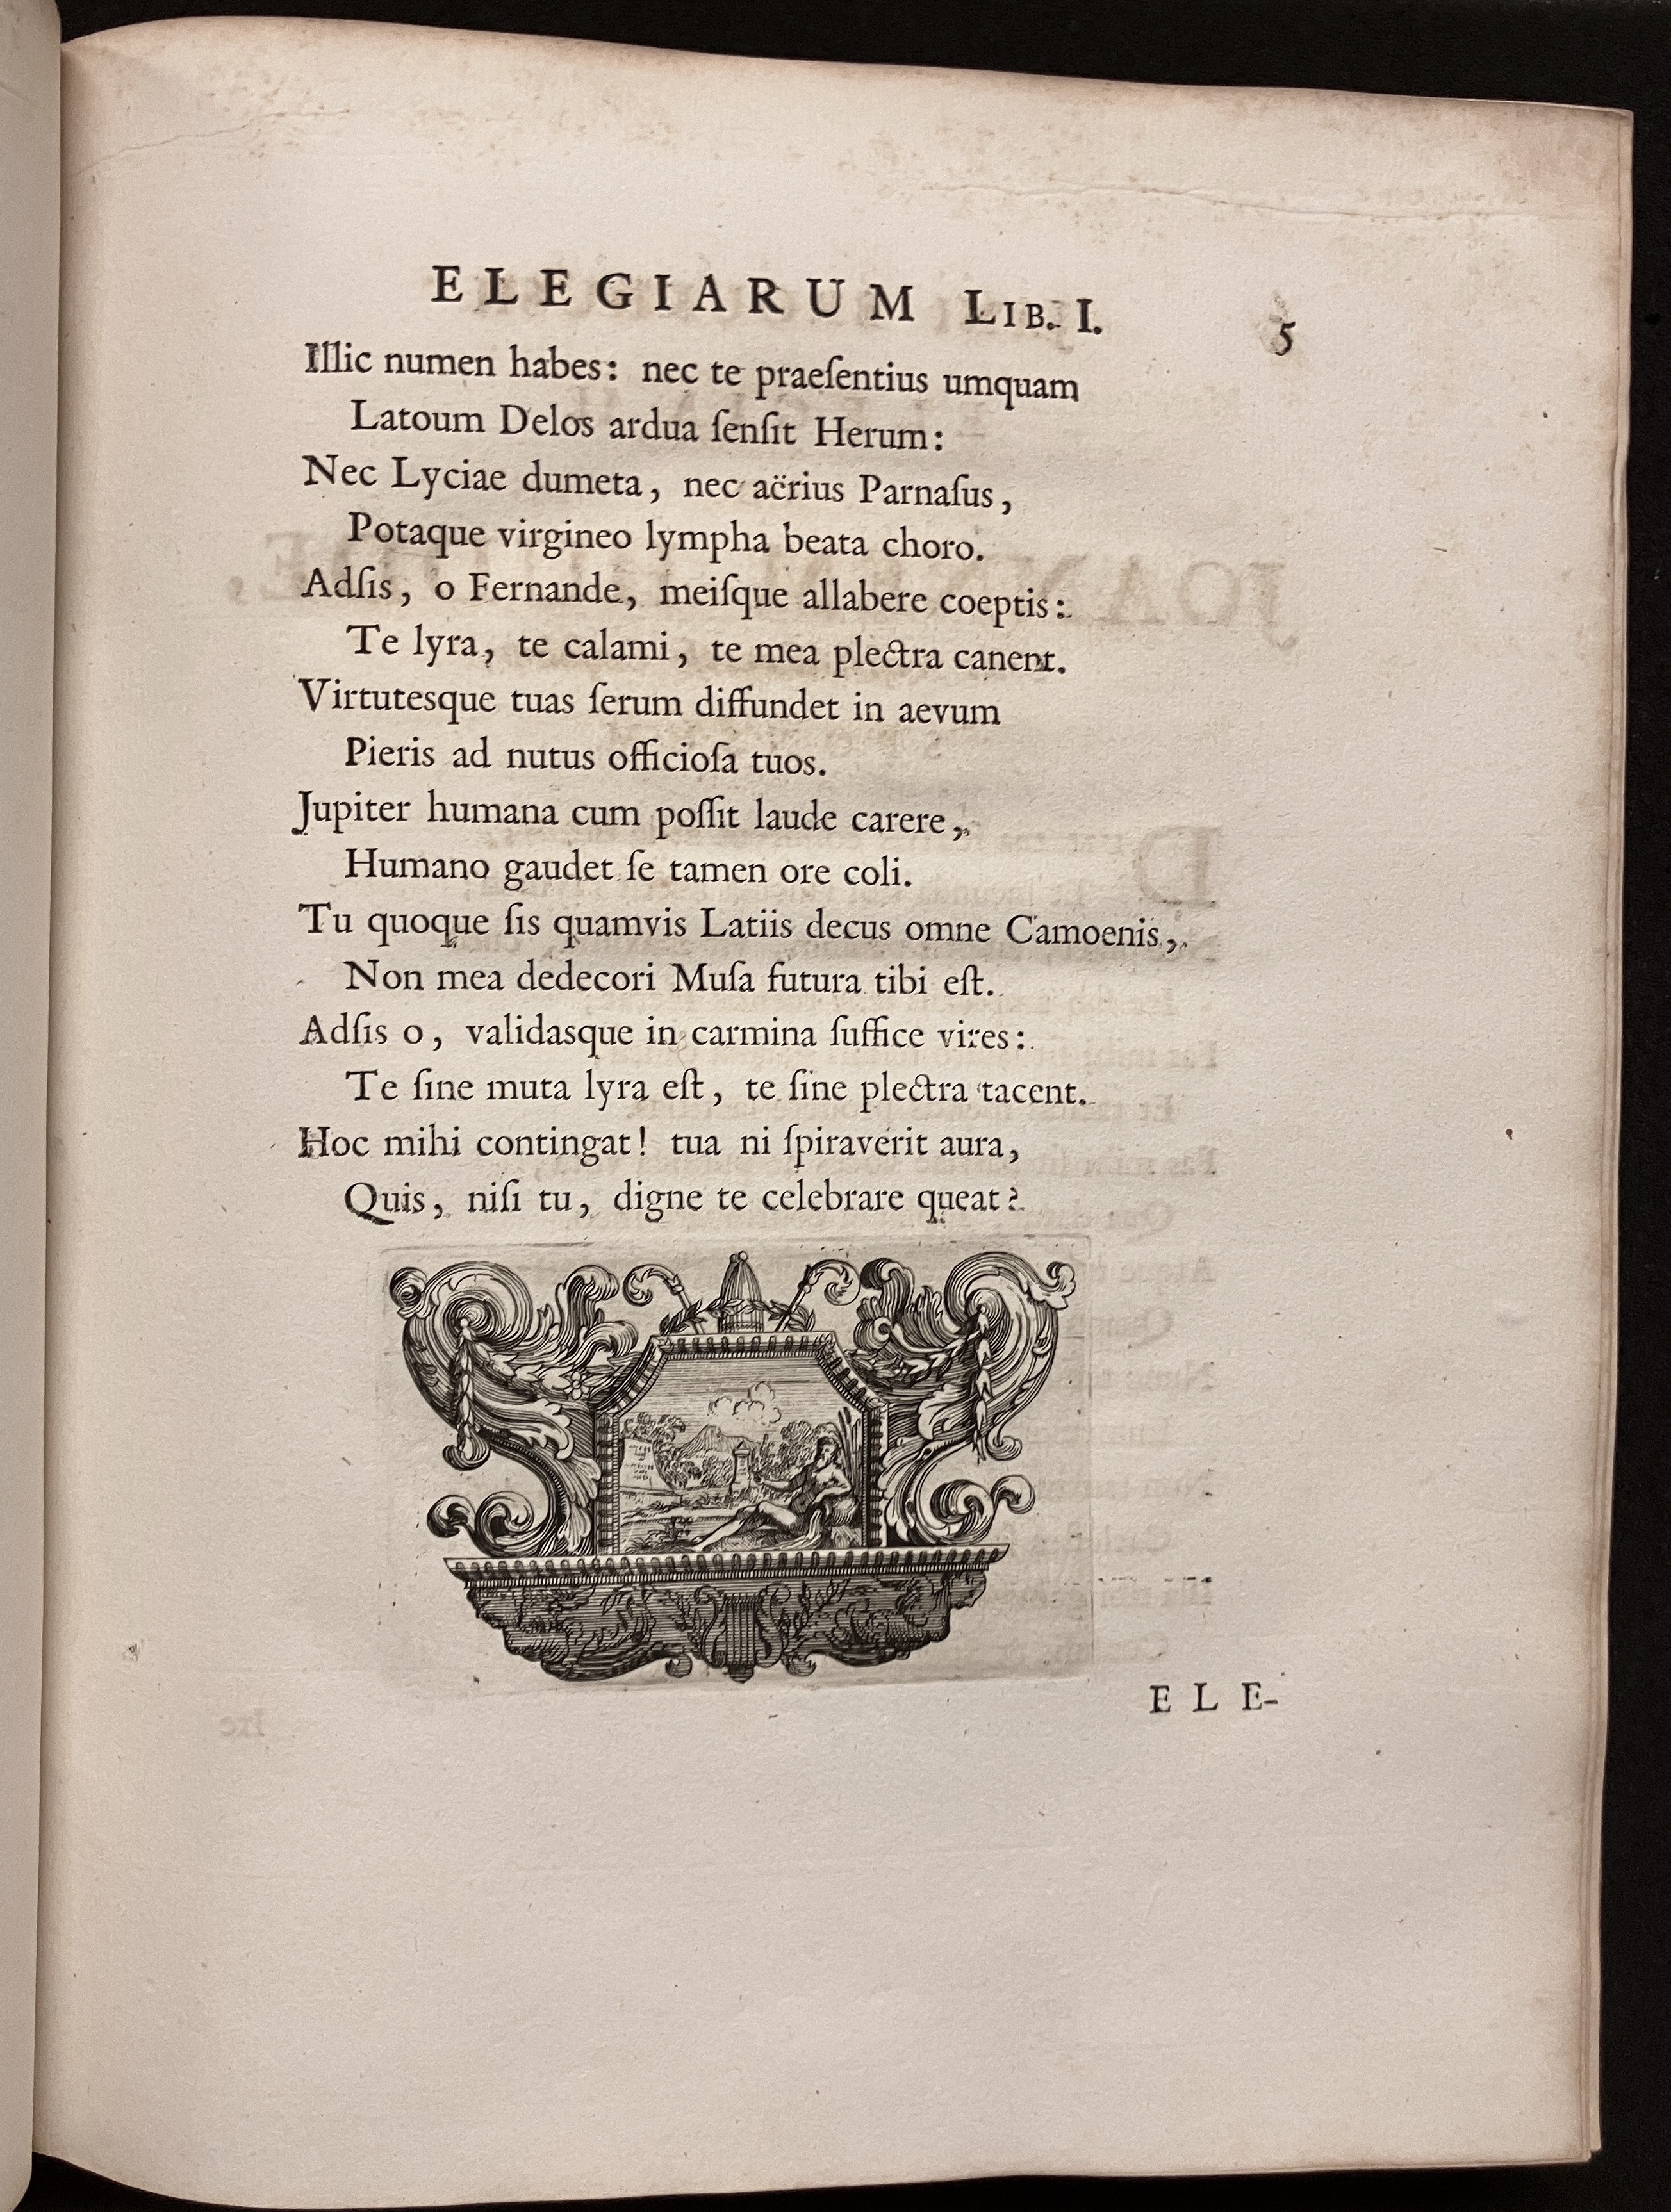 ELEGIARUM LIB. I. 5
Illic numen habes: nec te praeſentius umquam
Latoum Delos ardua ſenſit Herum:
Nec Lyciae dumeta, nec aërius Parnaſus,
Potaque virgineo lympha beata choro.
Adſis, o Fernande, meiſque allabere coeptis:
Te lyra, te calami, te mea plectra canent.
Virtutesque tuas ſerum diffundet in aevum
Pieris ad nutus officioſa tuos.
Jupiter humana cum poſſit laude carere,
Humano gaudet ſe tamen ore coli.
Tu quoque ſis quamvis Latiis decus omne Camoenis,
Non mea dedecori Muſa futura tibi eſt.
Adſis o, validasque in carmina ſuffice vires:
Te ſine muta lyra eſt, te ſine plectra tacent.
Hoc mihi contingat! tua ni ſpiraverit aura,
Quis, niſi tu, digne te celebrare queat?
ELE-